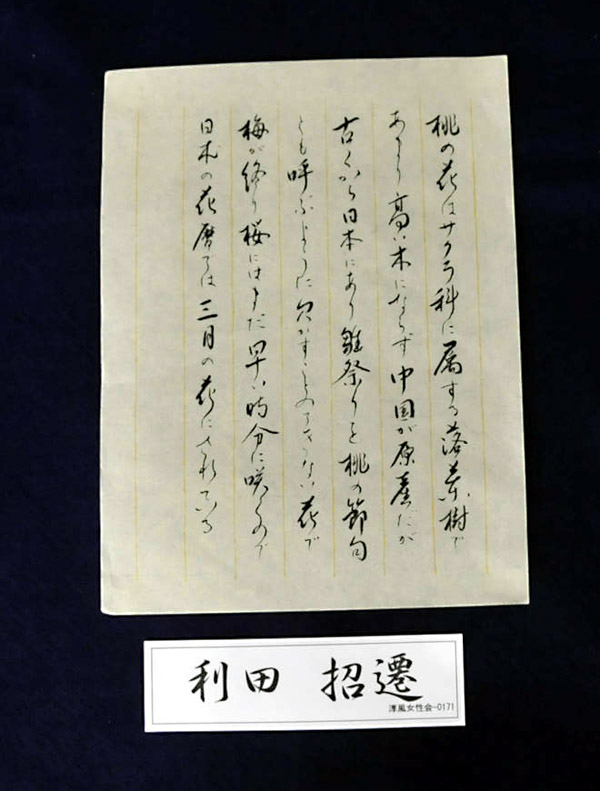 桃の花はサクラ科に属する落葉樹で
あまり高い木にならず中国が原産だが
古くから日本にあり雛祭りを桃の節句
とも呼ぶように欠かすことのできない花で
梅が終り桜にはまだ早い時分に咲くので
日本の花暦では三月の花にされている
利田 招遷
淳風女性会-0171